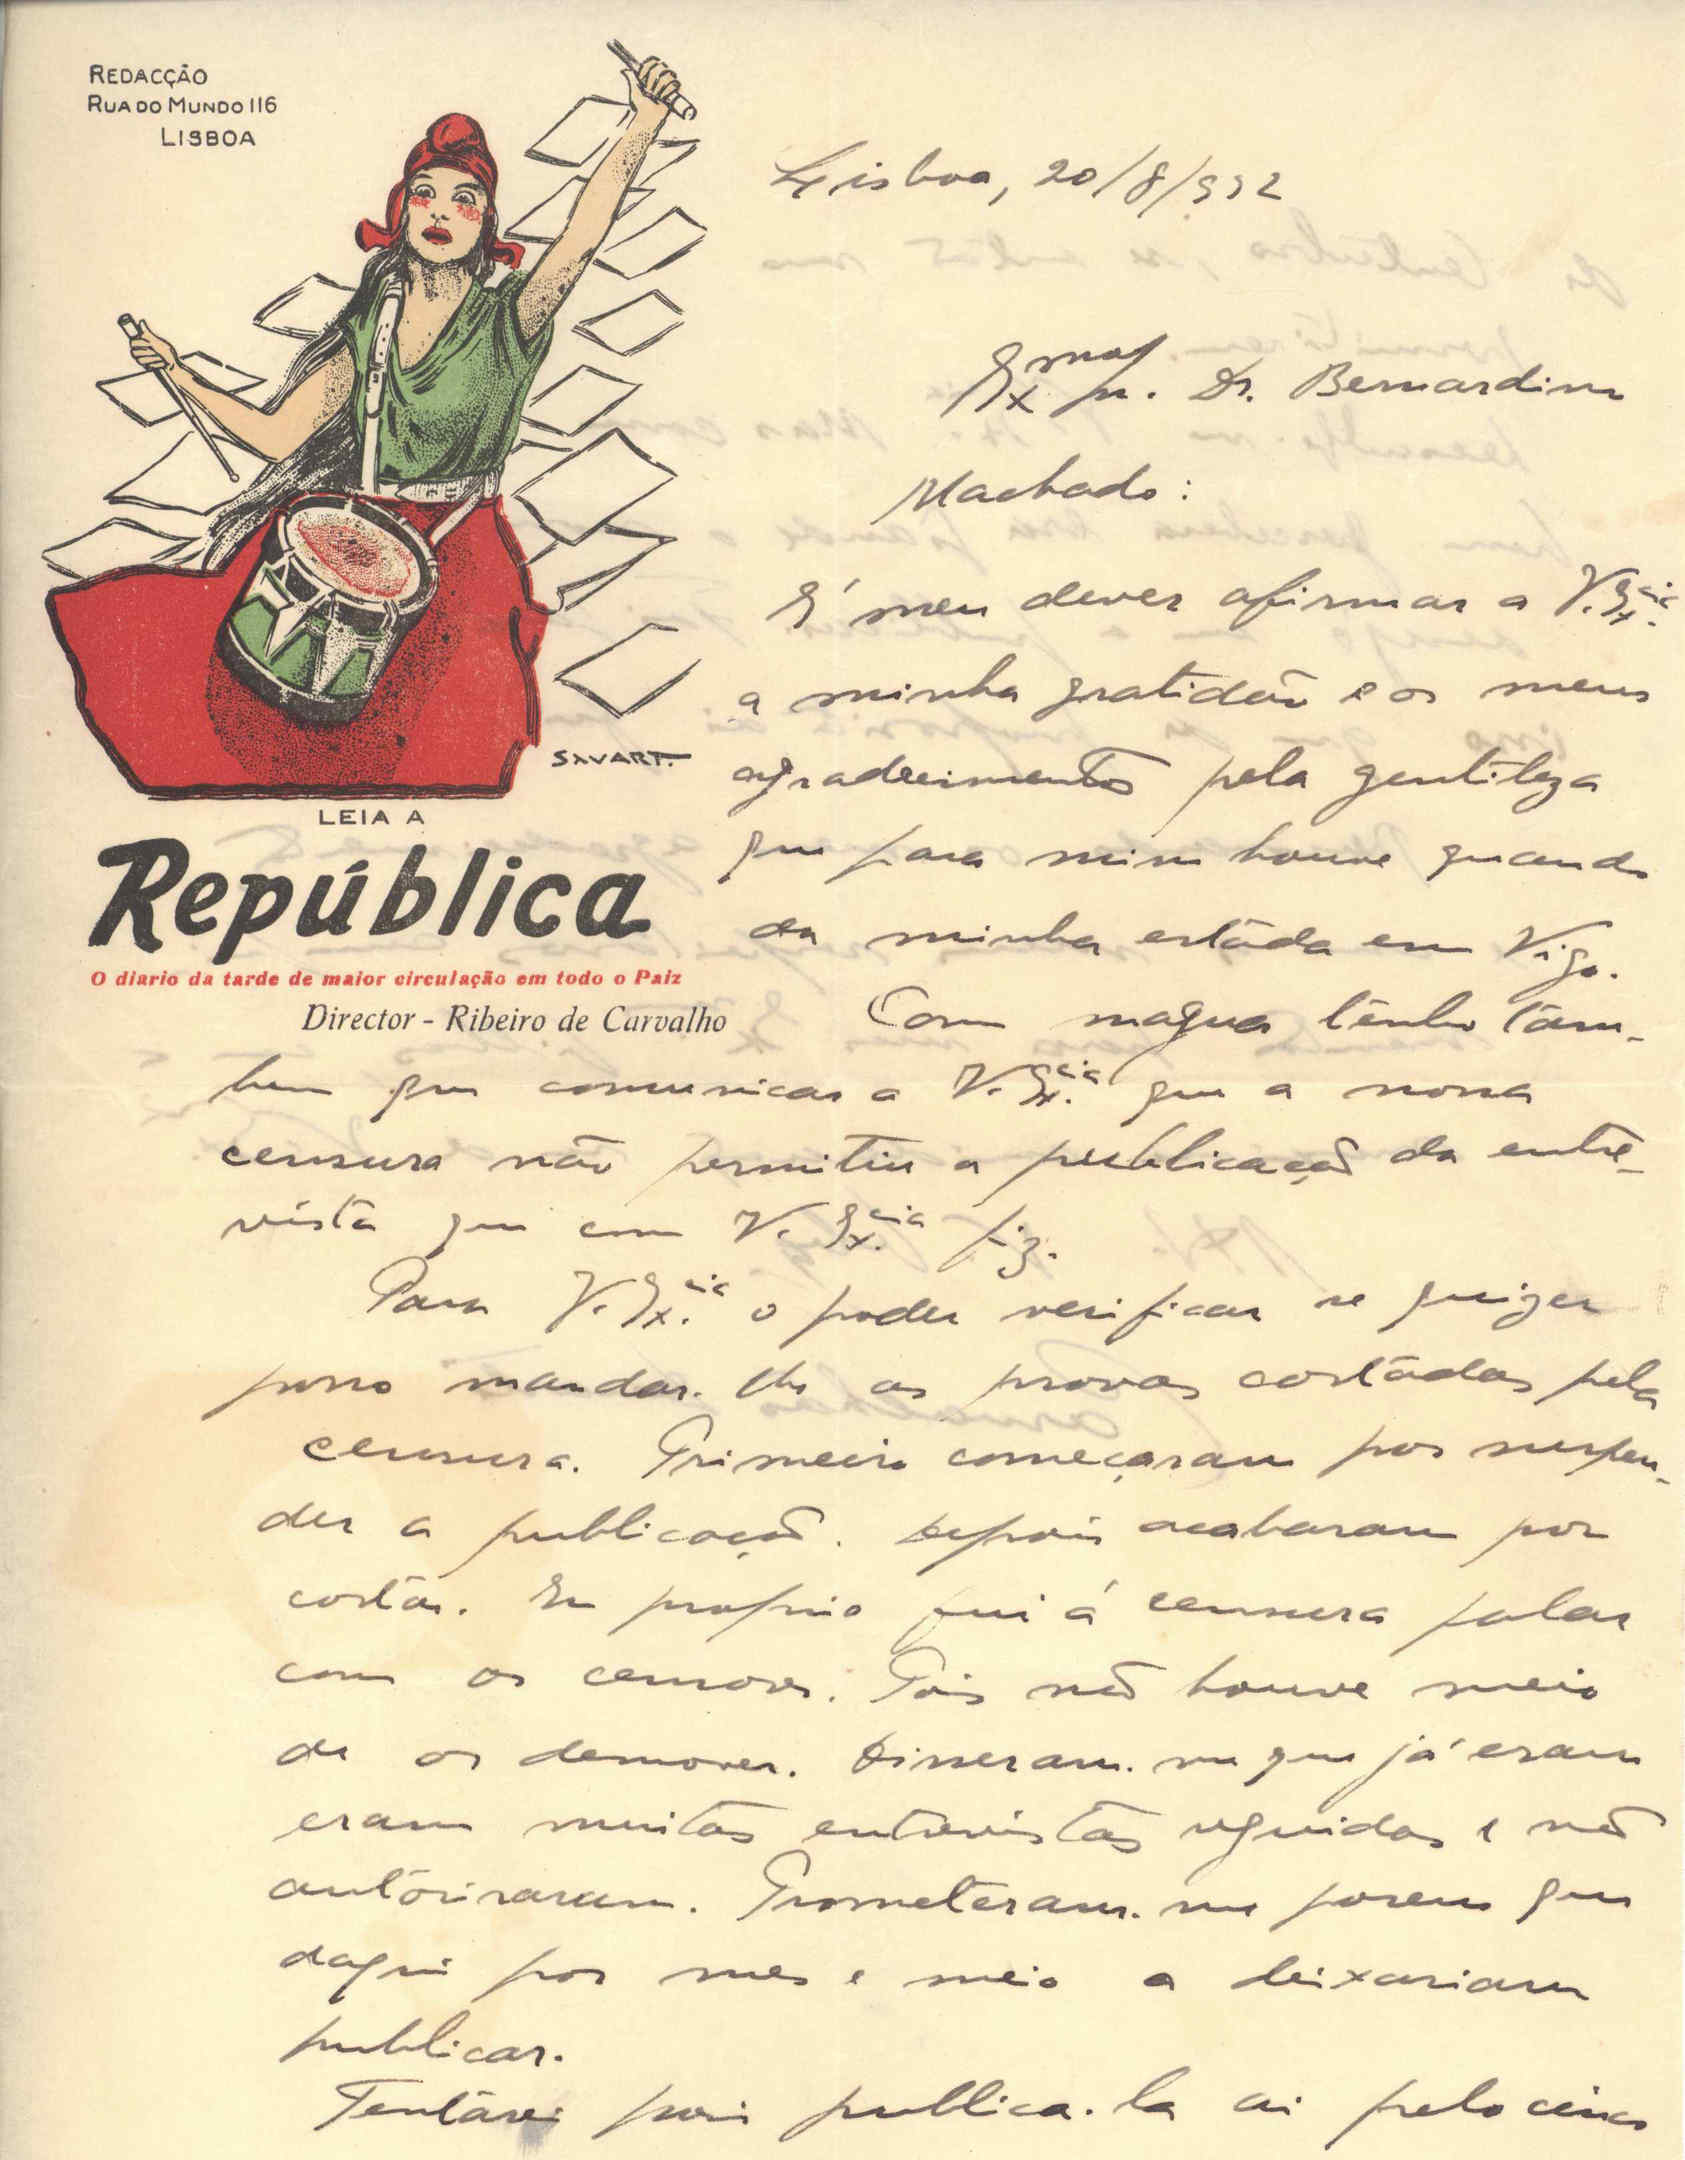 REDACÇÃO
RUA DO MUNDO 116
LISBOA
SAVART.
LEIA A
República
O diario da tarde de maior circulação em todo o Paiz
Director - Ribeiro de Carvalho
Lisboa, 20/8/932
Exmo Sr. Dr. Bernardino
Machado:
É meu dever afirmar a V. Excia.
a minha gratidão e os meus
agradecimentos pela gentileza
que para mim houve quando
da minha estada em Vigo.
Com magua tenho tam-
bem que comunicar a V. Excia. que a nossa
censura não permitiu a publicação da entre-
vista que com V. Excia. fiz.
Para V. Excia. o poder verificar se quizer
posso mandar-lhe as provas cortadas pela
censura. Primeiro começaram por suspen-
der a publicação. Depois acabaram por
cortar. Eu proprio fui á censura falar
com os censores. Pois não houve meio
de os demover. Disseram-me que já eram
eram muitas entrevistas seguidas e não
autorisaram. Prometeram-me porem que
daqui por mes e meio a deixariam
publicar.
Tentarei pois publica-la ai pelo cinco